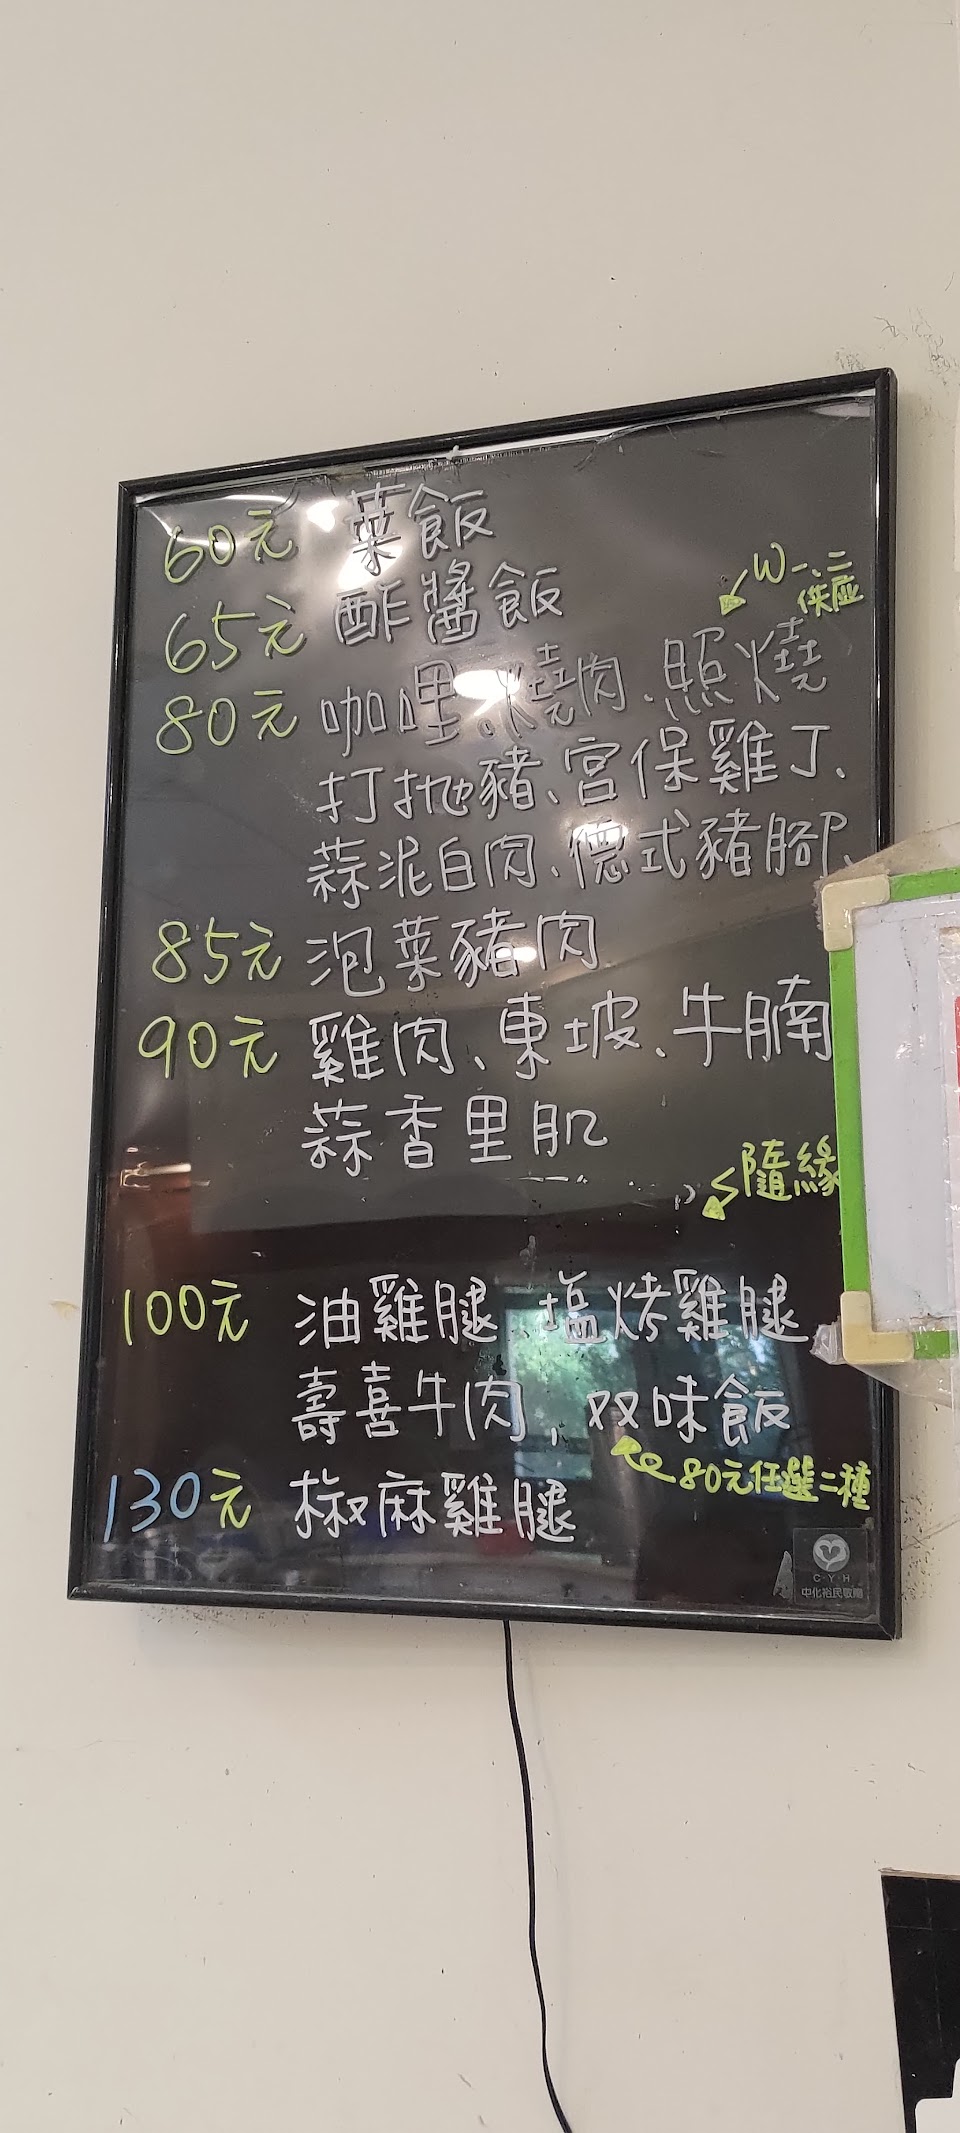 60元 菜飯
65元 酢醬飯
W一、二供應
80元 咖哩、燒肉、照燒
打抛豬、宮保雞丁、
蒜泥白肉、德式豬腳、
85元 泡菜豬肉
90元 雞肉、東坡、牛腩
蒜香里肌
隨緣
100元 油雞腿、塩烤雞腿
壽喜牛肉、双味飯
80元任選二種
130元 椒麻雞腿
C·Y·H
中化裕民敬贈